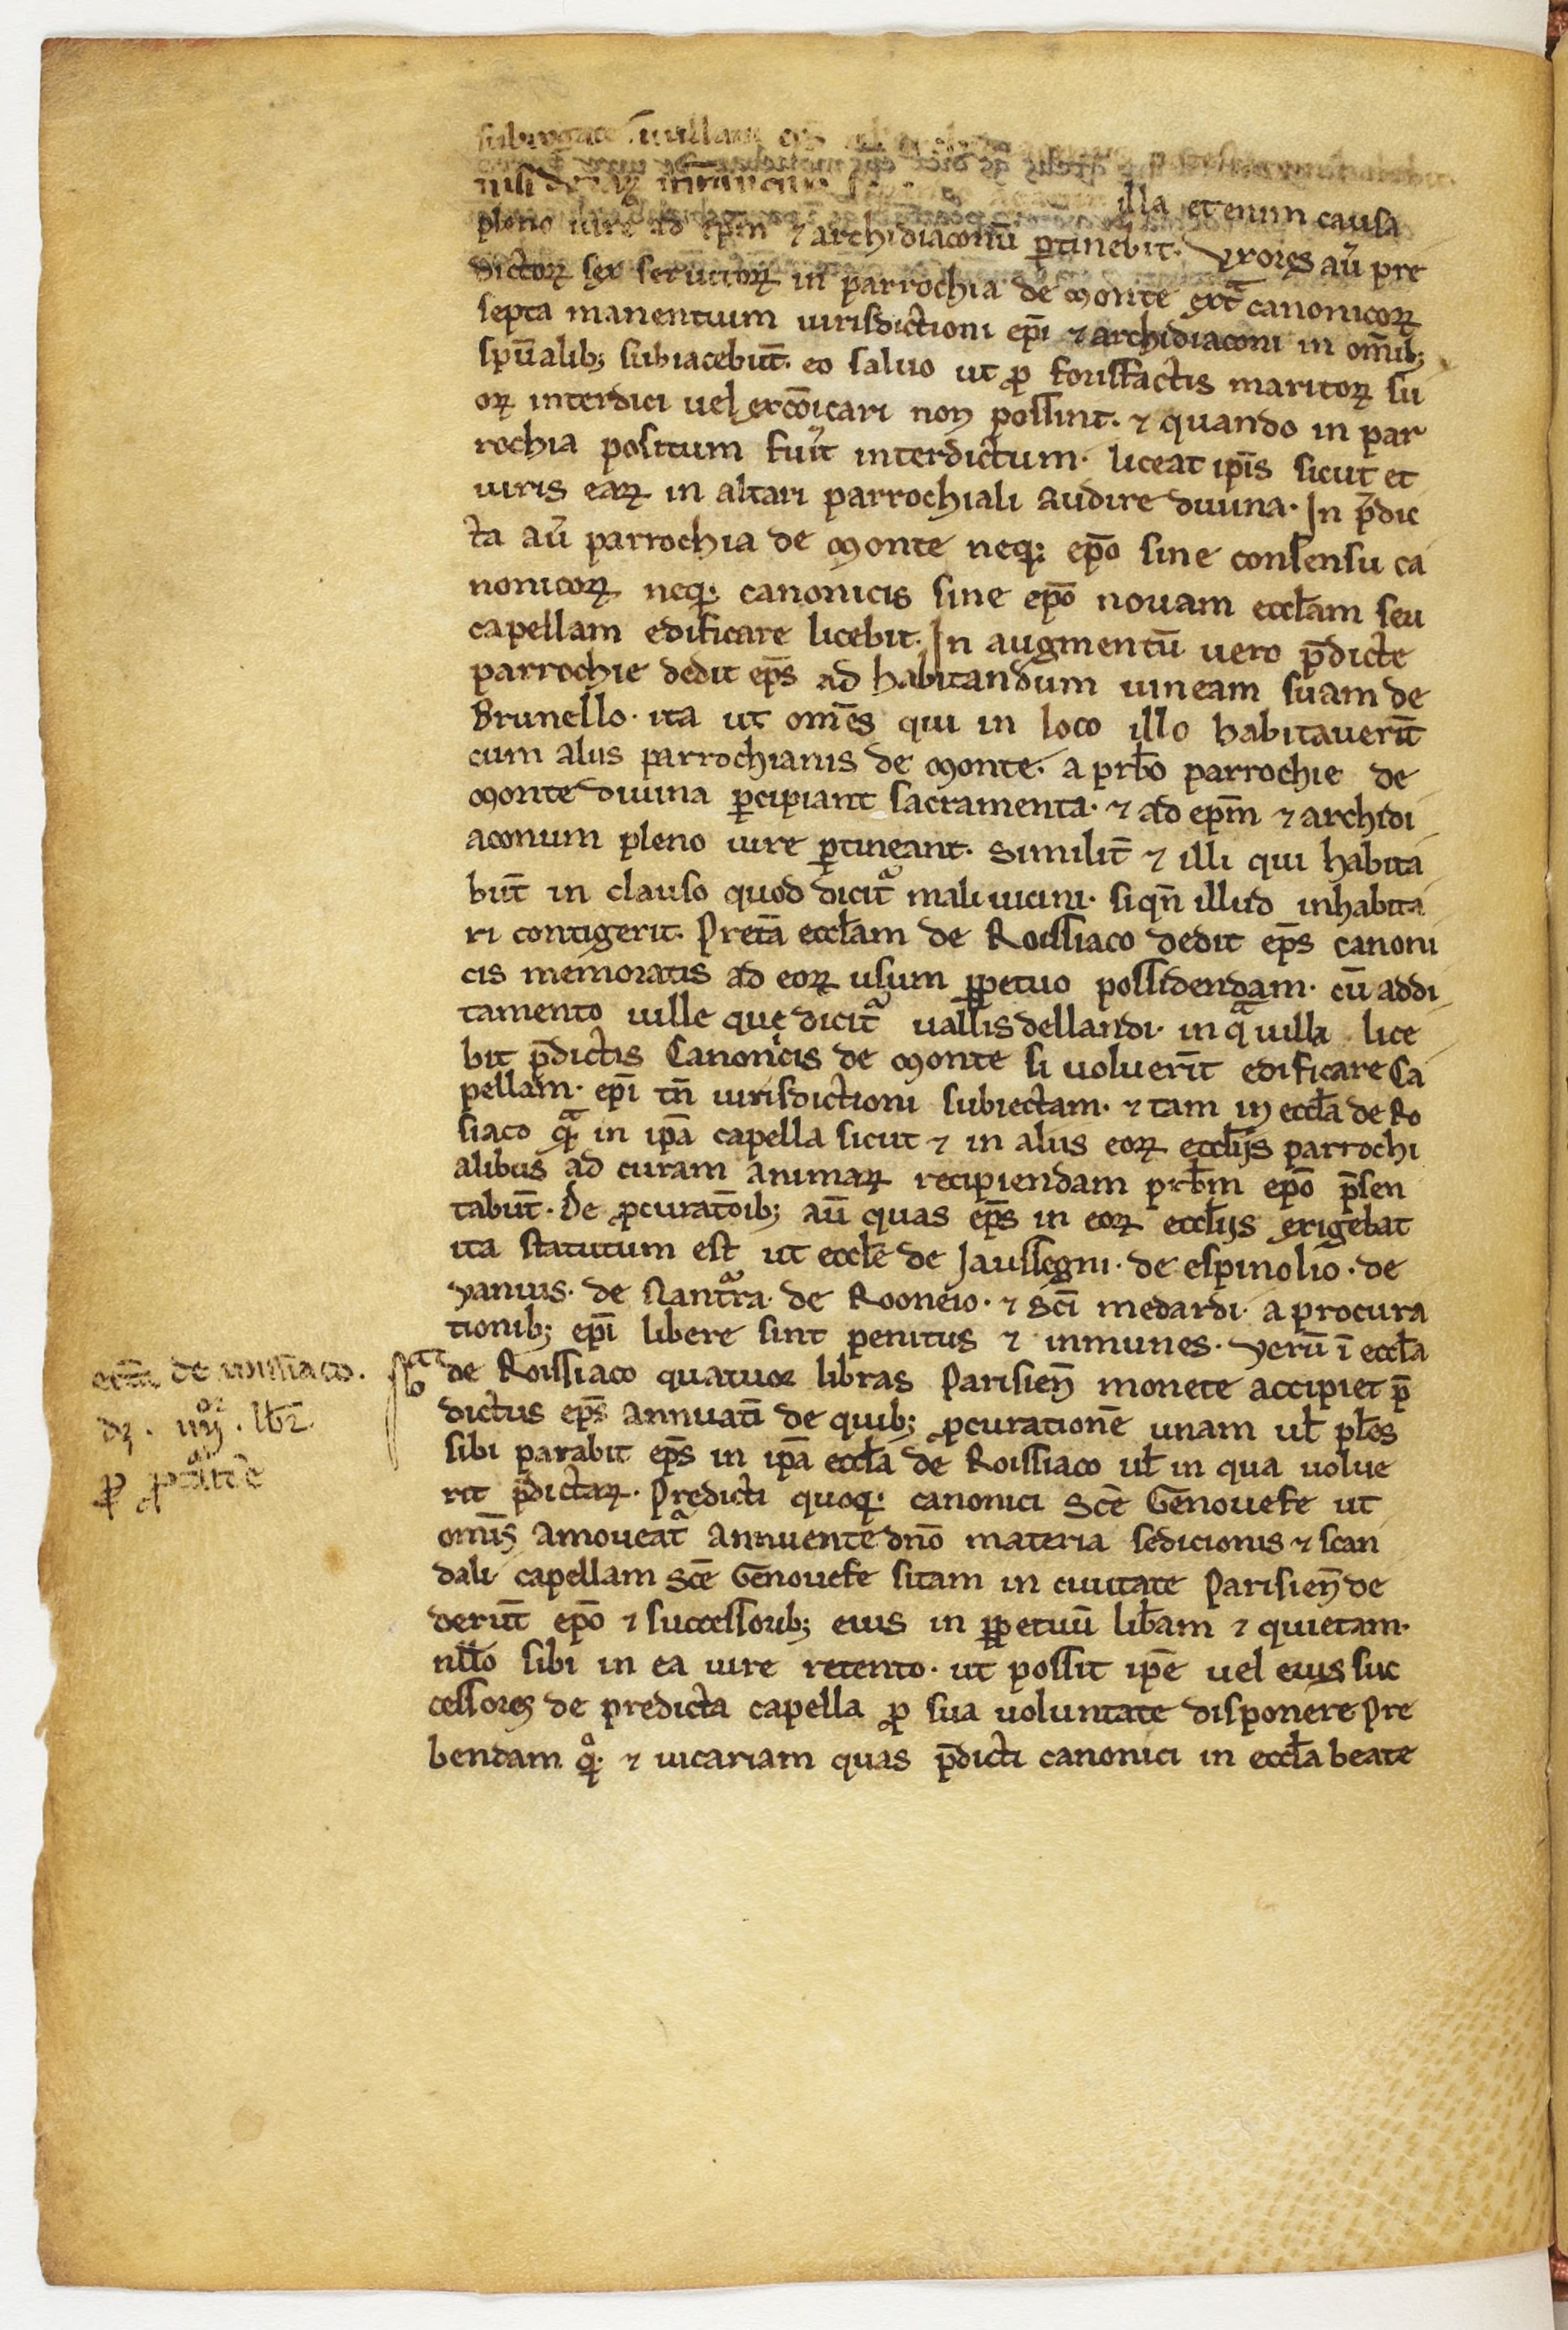 nisi
illa et enim causa
pleno iure ad ep̄m ⁊ archidiaconū ꝑtinebit. Vxores aū pre
dictoꝝ sex seruitoꝝ in parrochia de Monte ext̄ canonicoꝝ
septa manentium iurisdictioni ep̄i ⁊ archidiaconi in om̄ib;
sp̄ualib; subiacebūt. eo saluo ut ꝓ forisfactis maritoꝝ su
oꝝ interdici uel excōicari non possint. ⁊ quando in par
rochia positum fuit̄ interdictum. liceat ip̄is sicut et
uiris eaꝝ in altari parrochiali audire diuina. In p̄dic
ta aū parrochia de Monte neq; ep̄o sine consensu ca
nonicoꝝ neq; canonicis sine ep̄o nouam eccl̄am seu
capellam edificare licebit. In augmentū uero p̄dicte
parrochie dedit ep̄s ad habitandum uineam suam de
Brunello. ita ut om̄es qui in loco illo habitauerīt
cum aliis parrochianis de Monte. a prb̄o parrochie de
Monte diuina ꝑcipiant sacramenta. ⁊ ad ep̄m ⁊ archidi
aconum pleno iure ꝑtineant. Similit̄ ⁊ illi qui habita
būt in clauso quod dicit᷑ mali uicini. siqn̄ illud inhabita
ri contigerit. Pret̄a eccl̄am de Roissiaco dedit ep̄s canoni
cis memoratis ad eoꝝ usum ꝑpetuo possidendam. cū addi
tamento uille quę dicit᷑ uallis dellandi. in qͣ uilla lice
bit p̄dictis Canonicis de Monte si uoluerīt edificare Ca
pellam. ep̄i tn̄ iurisdictioni subiectam. ⁊ tam in eccl̄a de Ro
siaco qͣ̄ in ip̄a capella sicut ⁊ in aliis eoꝝ eccl̄iis parrochi
alibus ad curam animaꝝ recipiendam prb̄m ep̄o p̄sen
tabūt. De ꝓcuratōib; aū quas ep̄s in eoꝝ eccl̄iis exigebat
ita statutum est ut eccl̄e de Jaussegni. de espinolio. de
Vanuis. de Nantͣra. de Rooneio. ⁊ Sc̄i medardi. a procura
tionib; ep̄i libere sint penitus ⁊ inmunes. Verū ī eccl̄a
de Roissiaco quatuor libras Parisien̄ monete accipiet p̄
dictus ep̄s annuatī de quib; ꝓcurationē unam ul̄ pl̄es
sibi parabit ep̄s in ip̄a eccl̄a de Roissiaco ul̄ in qua uolue
rit p̄dictaꝝ. Predicti quoq; canonici Sc̄e Genouefe ut
om̄is amoueat᷑ annuente dn̄o materia sedicionis ⁊ scan
dali capellam Sc̄e Genouefe sitam in ciuitate Parisien̄ de
derūt ep̄o ⁊ successorib; eius in ꝑpetuū lib̄am ⁊ quietam.
nll̄o sibi in ea iure retento. ut possit ip̄e uel eius suc
cessores de predicta capella ꝓ sua uoluntate disponere Pre
bendam qͦ; ⁊ uicariam quas p̄dicti canonici in eccl̄a beate
de